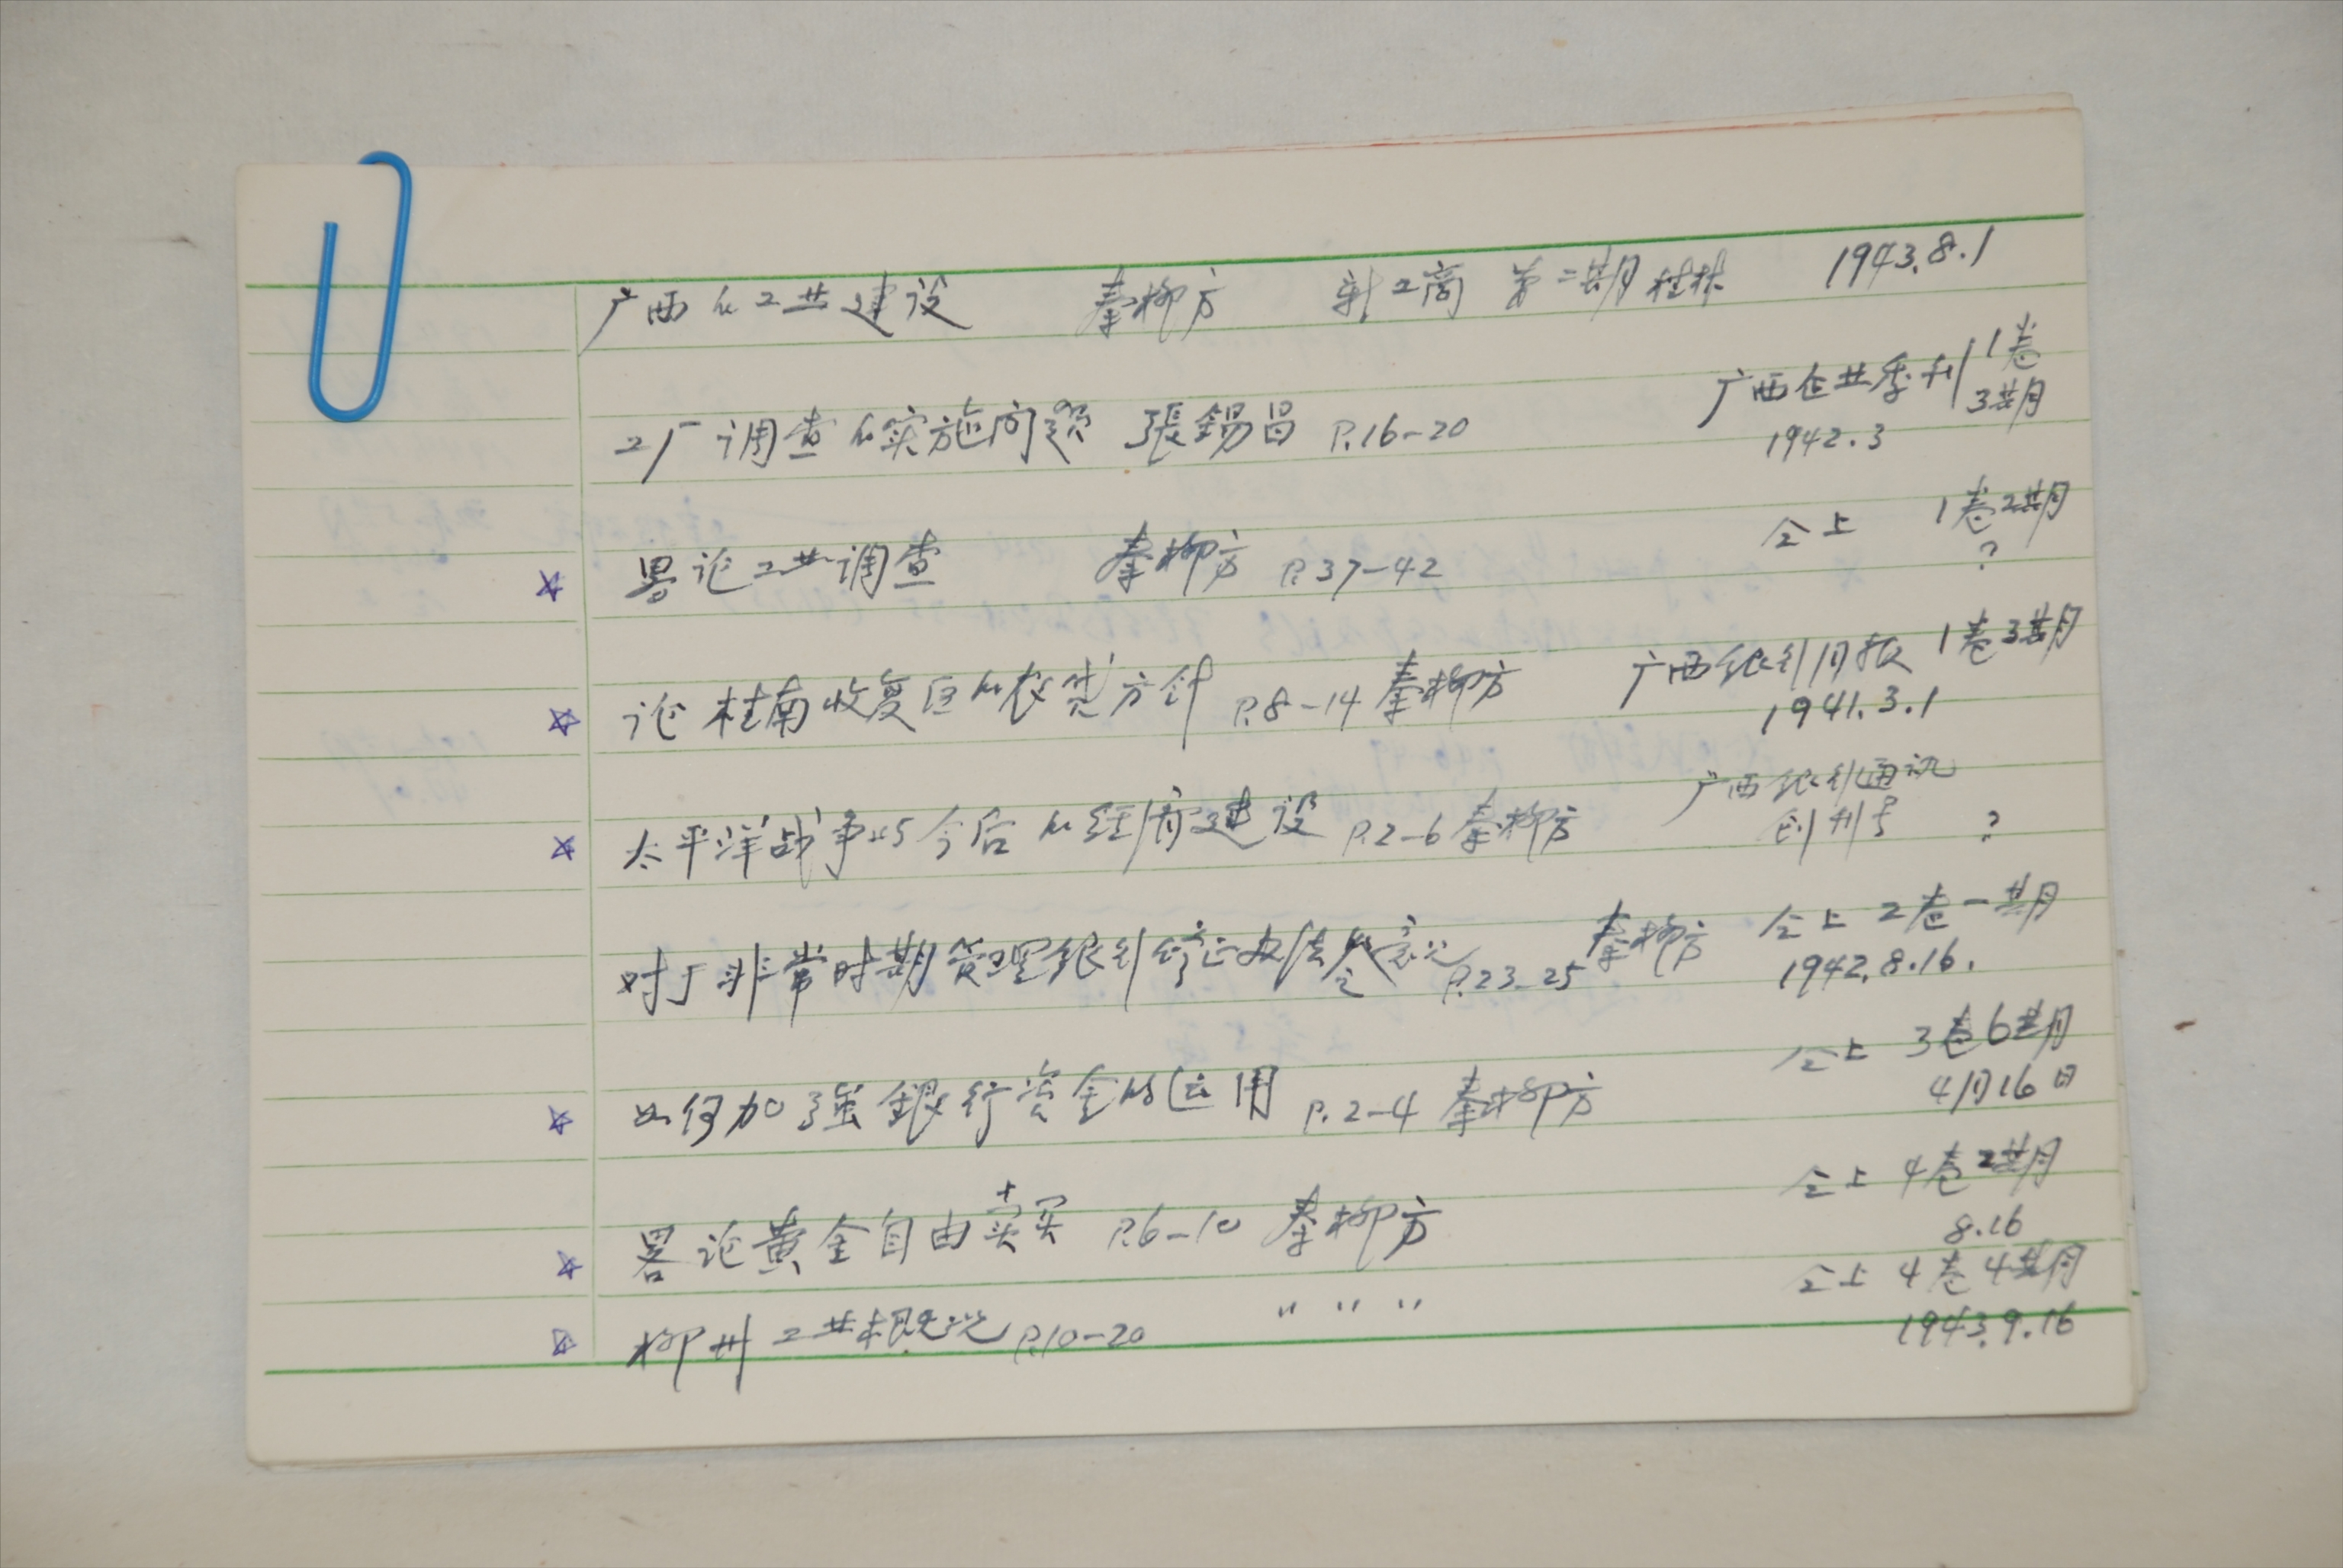 广西的工业建设 秦柳方 新工商 第二期 桂林 1943.8.1
工厂调查的实施问题 張錫昌 P.16-20 广西企业季刊 1卷
3期
1942.3
畧论工业调查 秦柳方 P.37-42 仝上 1卷2期
?
论桂南收复区的农贷方针 P.8-14 秦柳方 广西银行月报 1卷3期
1941.3.1
太平洋战争与今后的经济建设 P.2-6 秦柳方 广西银行通讯
创刊号 ?
对于非常时期管理银行修正办法之意见 P.23-25 秦柳方 仝上 2卷一期
1942.8.16.
如何加强銀行资金的运用 P.2-4 秦柳方 仝上 3卷6期
4月16日
畧论黄金自由卖买 P.6-10 秦柳方 仝上 4卷2期
8.16
柳州工业概况 P.10-20 " " " 仝上 4卷4期
1943.9.16